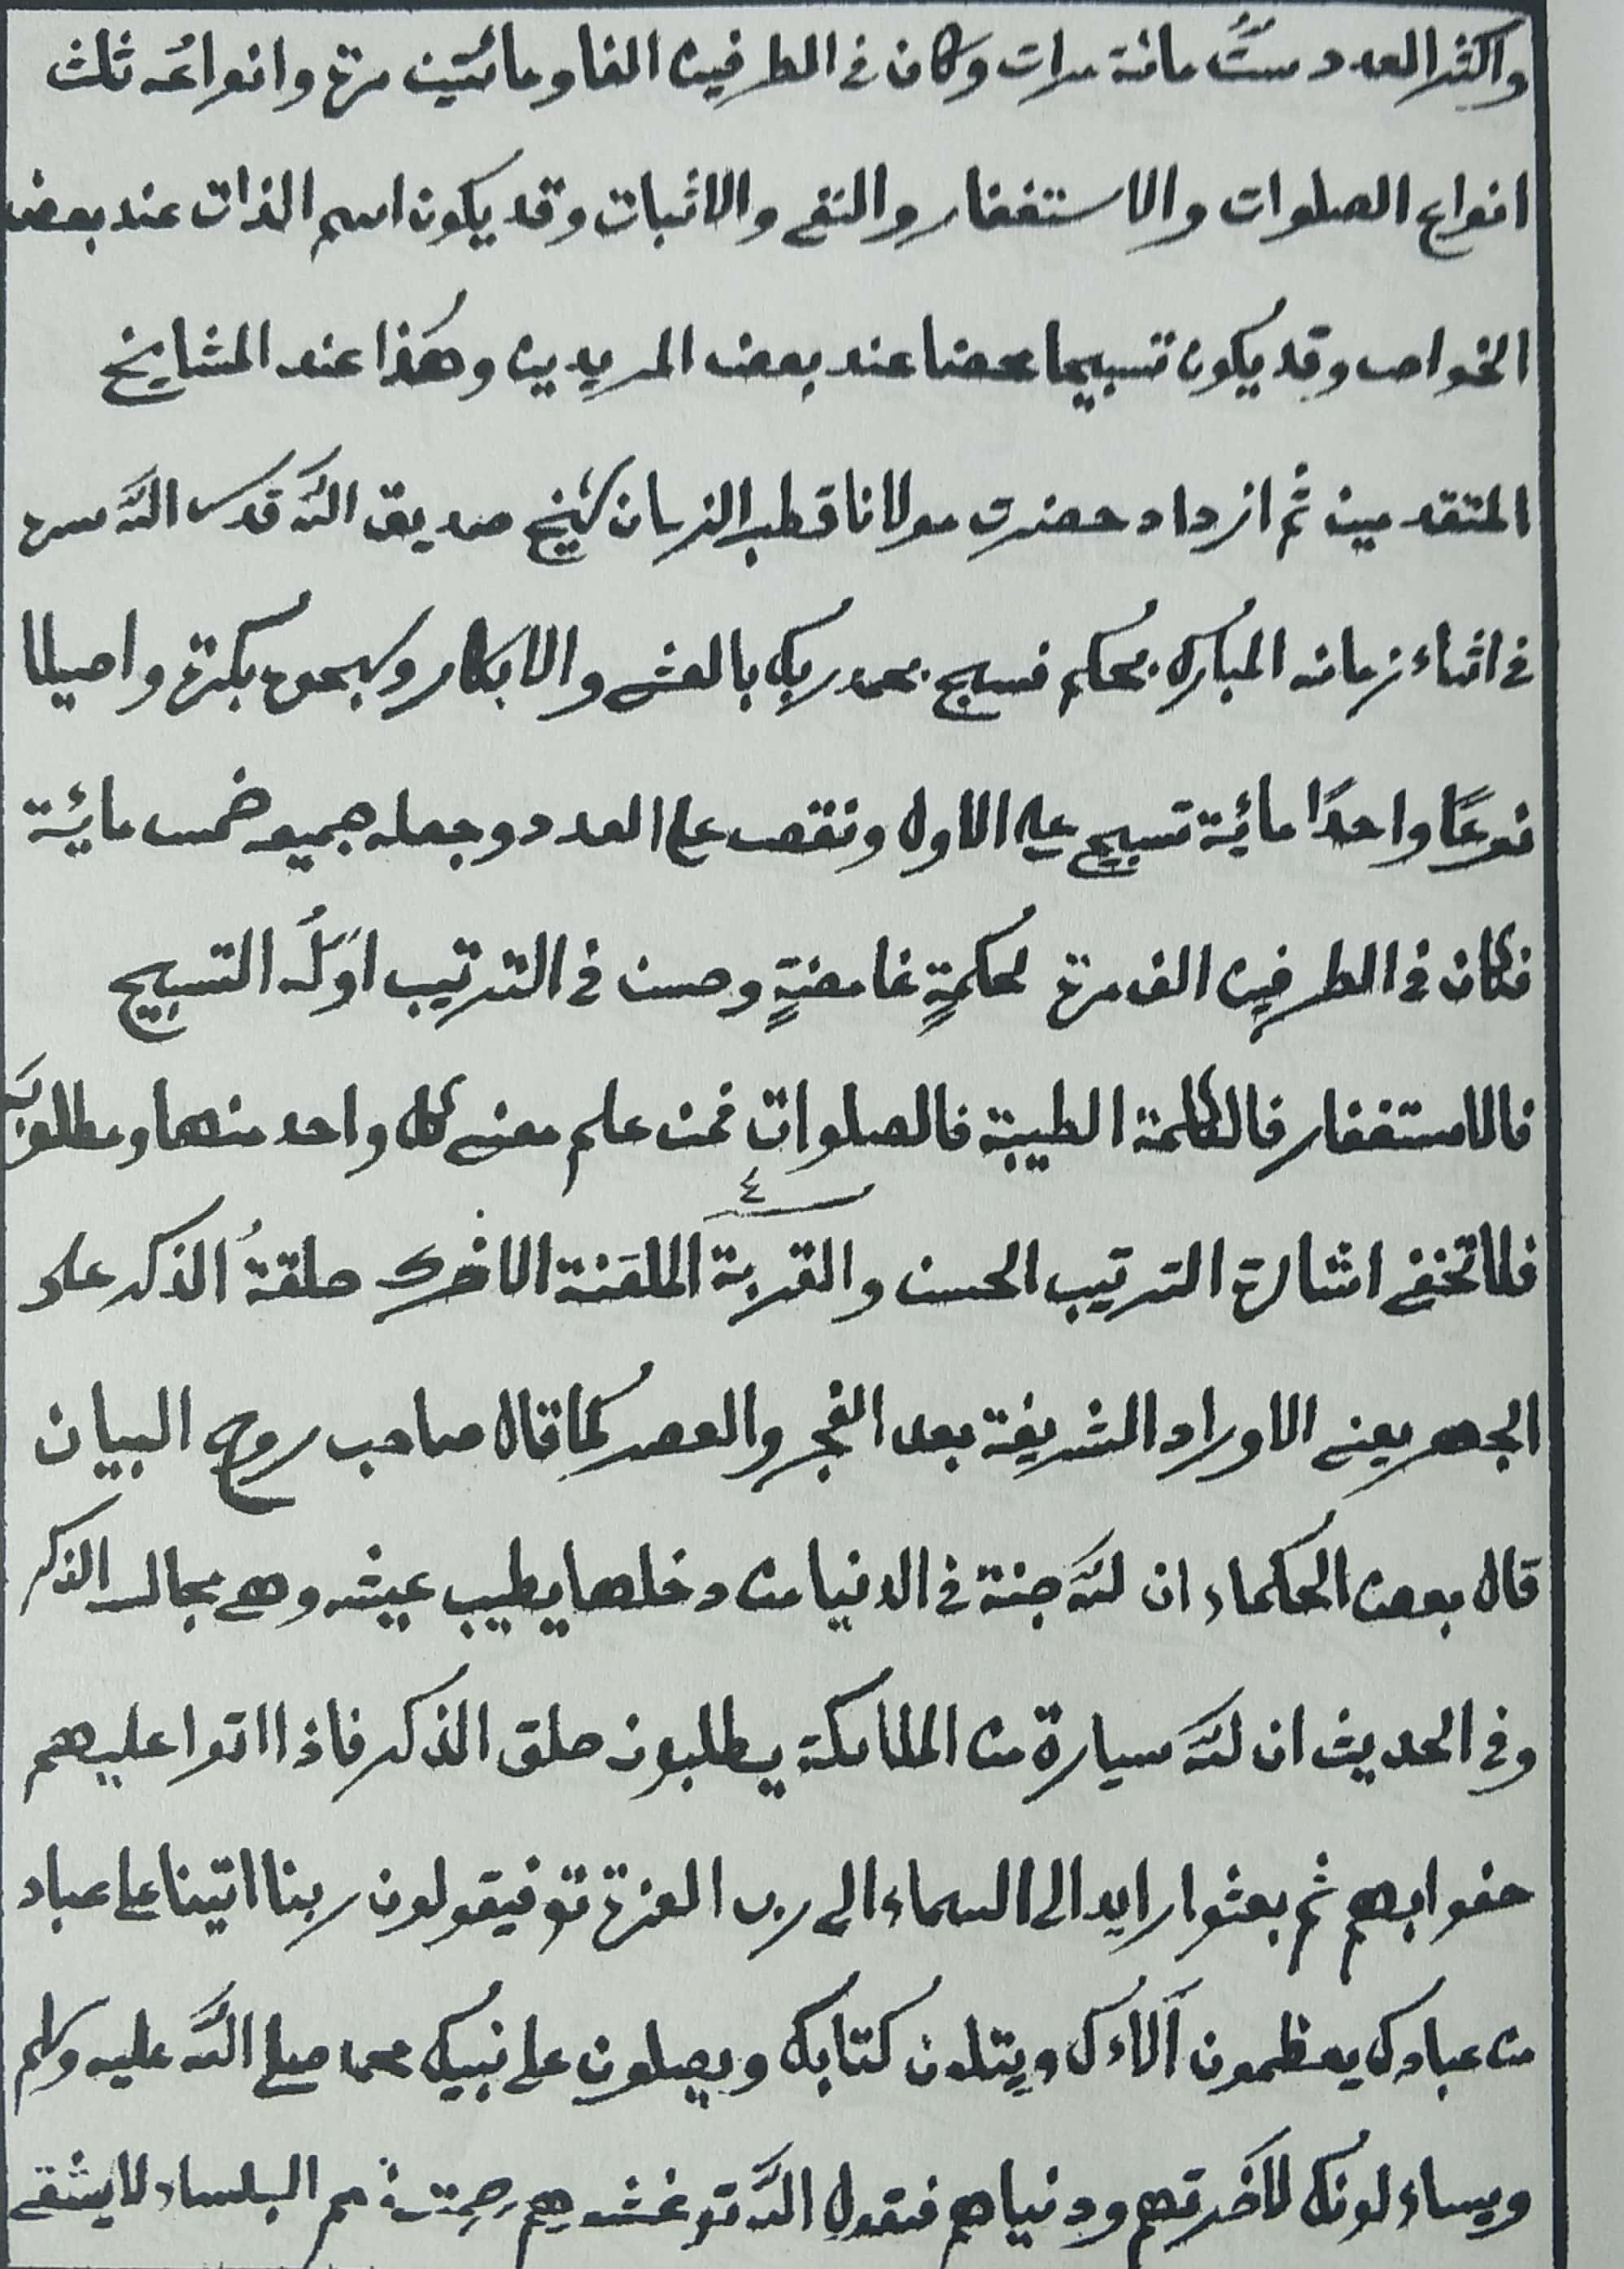 واكثر العدد ستُّ مائة مرات وكان في الطرفين الفا ومائتين مرة وانواعُه ثلث
انواع الصلوات والاستغفار والنفى والاثبات وقد يكون اسم الذات عند بعض
الخواص وقد يكون تسبيحا محضا عند بعض المريدين وهٰكذا عند المشايخ
المتقدمين ثم ازداد حضرت مولانا قطب الزمان شيخ صديق اللّه قدس اللّه سره
في اثناء زمانه المبارك بحكم فسبح بحمد ربك بالعشى والابكار وسبحوه بكرة واصيلا
نوعًا واحدًا مائية تسبيح على الاول ونقص على العدد وجعله جميعه خمس مائية
فكان في الطرفين الف مرة لحكمةٍ غامضةٍ وحسن في الترتيب اوّلُه التسبيح
فالاستغفار فالكلمة الطيبة فالصلوات فمن علم معنى كل واحد منهما ومطلوبَه
٤
فلا تخفى اشارة الترتيب الحسن والقربة الملقنة الاخرى حلقةُ الذكر على
الجهر يعنى الاوراد الشريفة بعد الفجر والعصر كما قال صاحب روح البيان
قال بعض الحكماء ان للّه جنة في الدنيا من دخلها يطيب عيشه وهى مجالس الذكر
وفي الحديث ان للّه سيارة من الملائكة يطلبون حلق الذكر فاذا اتوا عليهم
حفوا بهم ثم بعثوا رايد الى السماء الى رب العزة تع فيقولون ربنا اتينا على عباد
من عبادك يعظمون آلاءك ويتلون كتابك ويصلون على نبيك محمد صلى اللّه عليه وسلم
ويساءلونك لاخرتهم ودنياهم فيقول اللّه تع غشوهم رحمتى فهم الجلساء لا يشقى